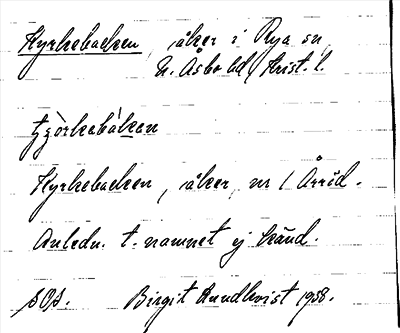 Kyrkebacken, åker i Rya sn,
N. Åsbo hd, Krist. l.
Kyrkebacken, åker, nr 1 Årröd.
Anledn. t. namnet ej känd.
SOA. Birgit Rundkvist 1958.